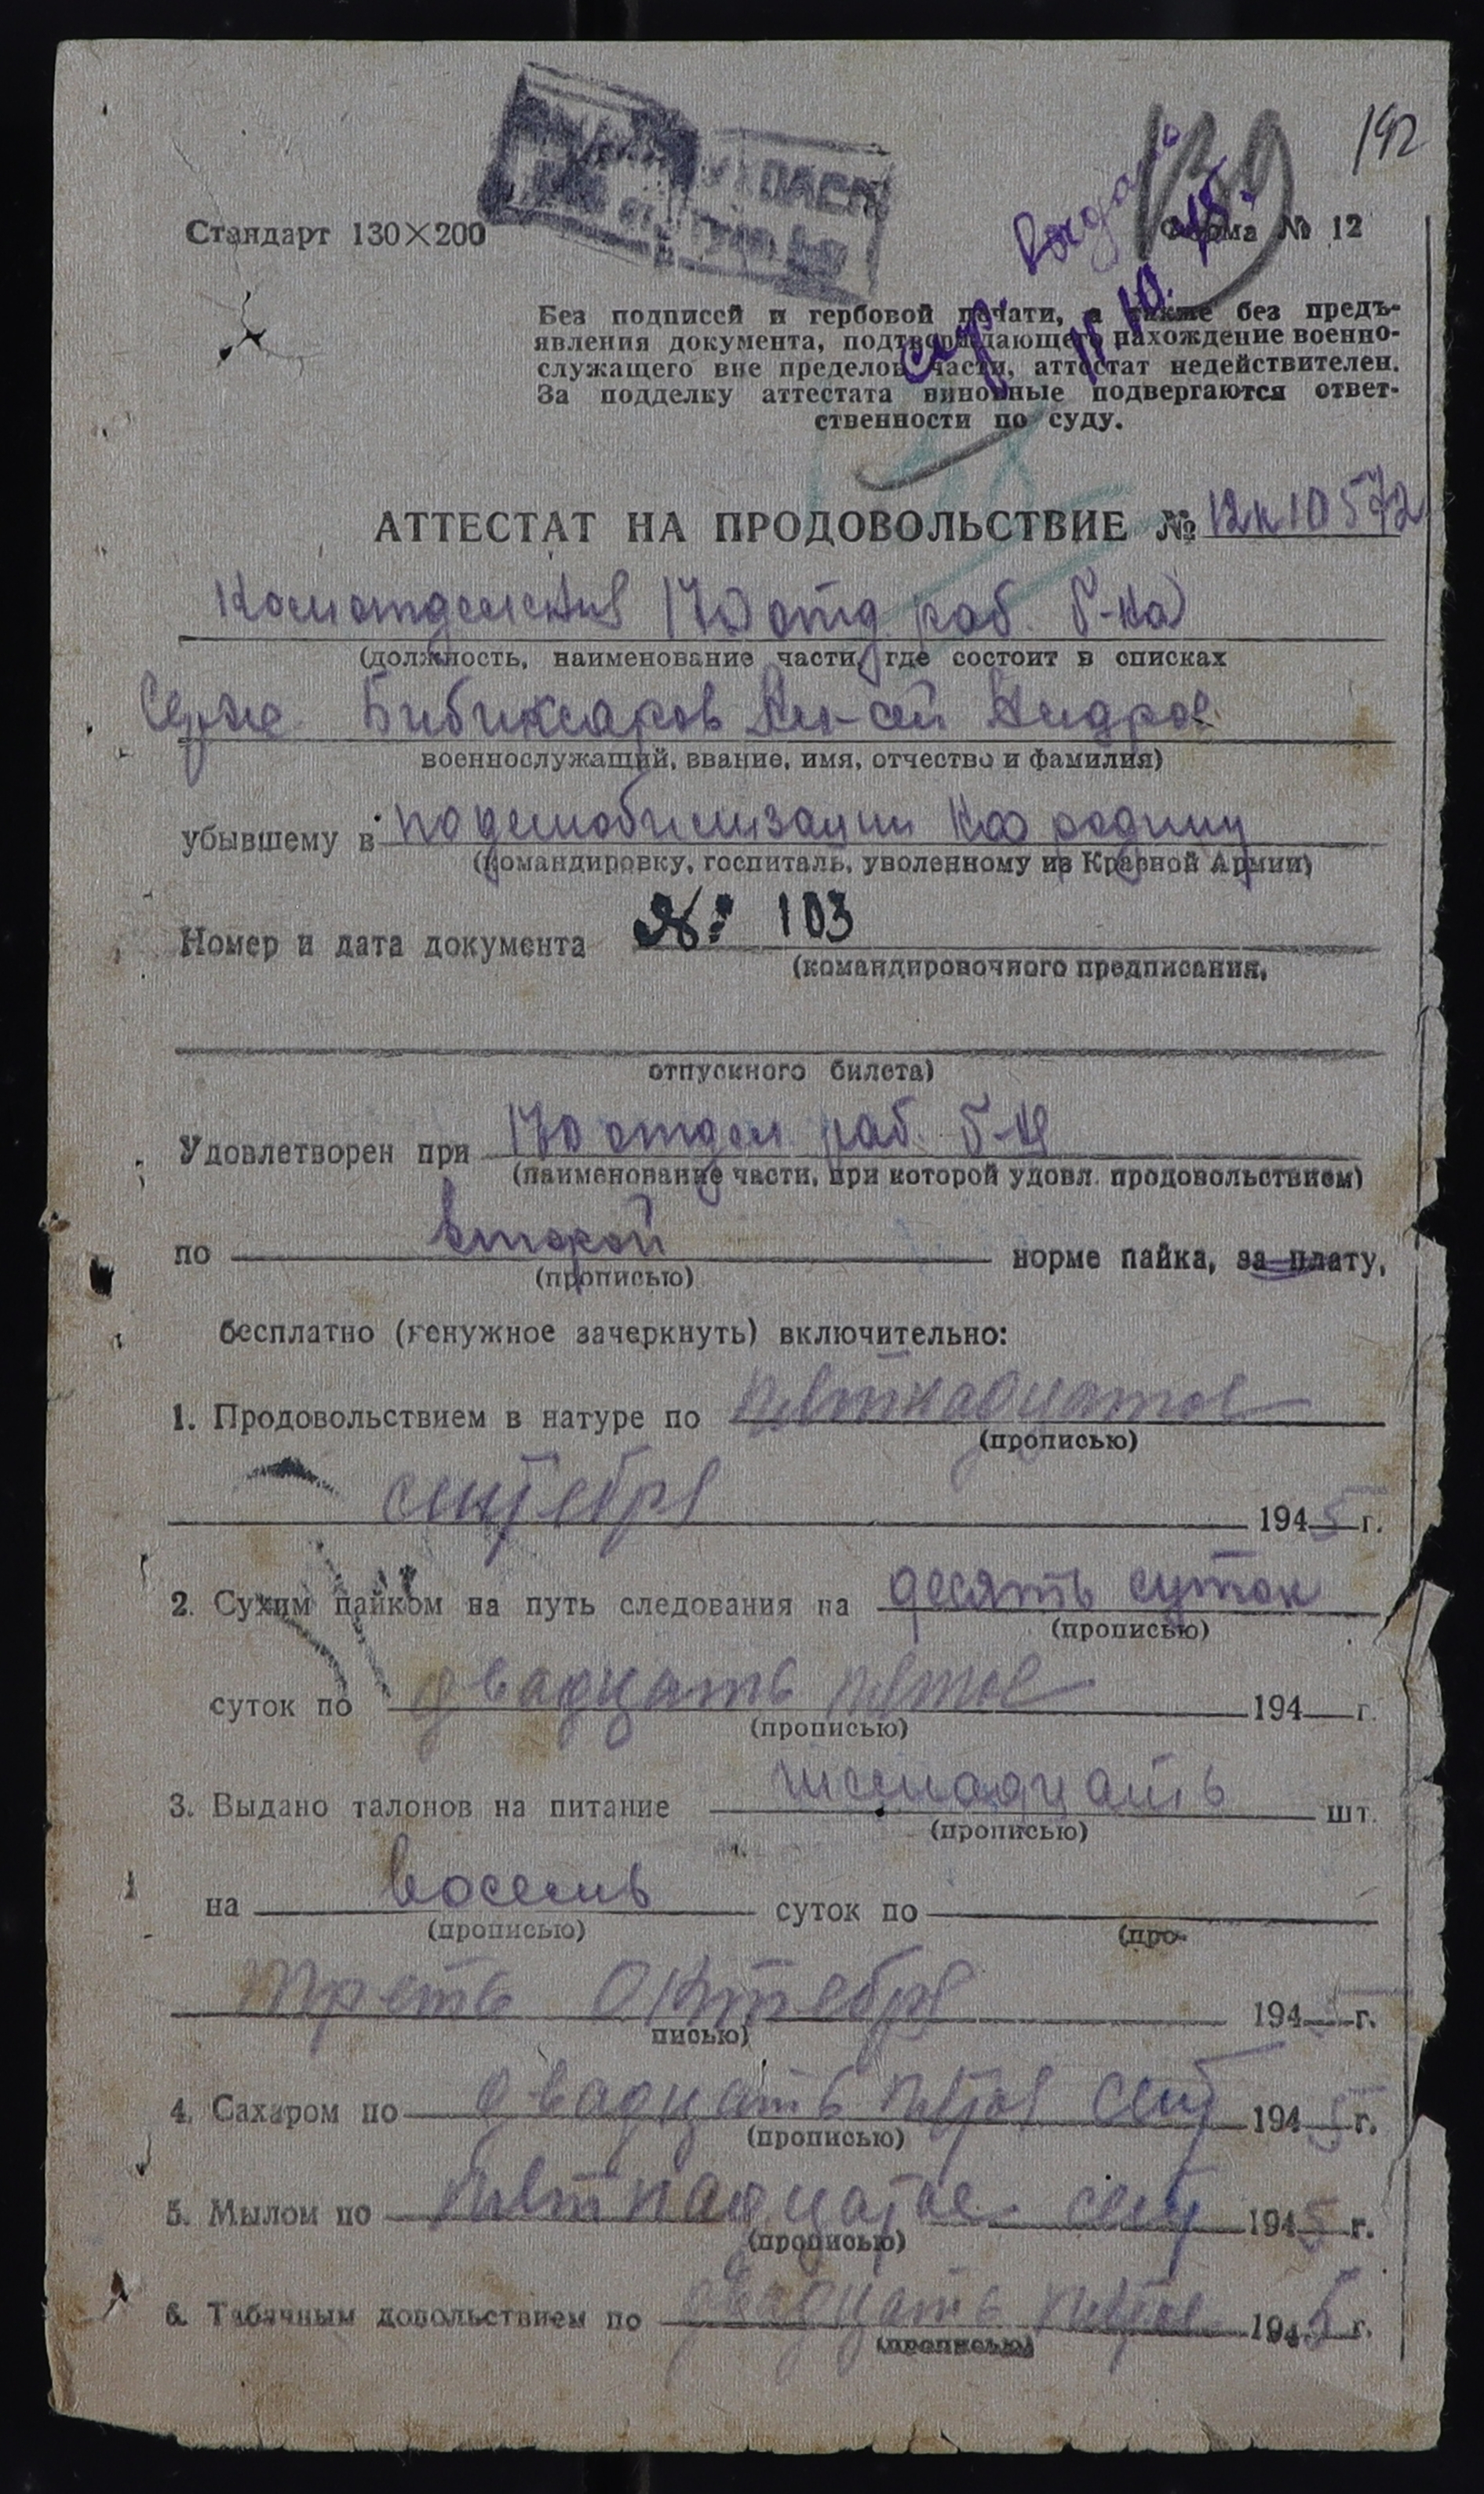 192
139
Стандарт 130×200
Форма № 12
11.10.45.
Без подписей и гербовой печати, а также без предъ-
явления документа, подтверждающего нахождение военно-
служащего вне пределов части, аттестат недействителен.
За подделку аттестата виновные подвергаются ответ-
ственности по суду.
АТТЕСТАТ НА ПРОДОВОЛЬСТВИЕ № 12к10572
Ком отделения 170 отд. раб. б-на
(должность, наименование части, где состоит в списках
Серж. Бибиксаров Ал-сей Андров
военнослужащий, звание, имя, отчество и фамилия)
убывшему в по демобилизации на родину
(командировку, госпиталь, уволенному из Красной Армии)
Номер и дата документа № 103
(командировочного предписания,
отпускного билета)
Удовлетворен при 170 отдел раб. б-не
(наименование части, при которой удовл. продовольствием)
по второй норме пайка, за плату,
(прописью)
бесплатно (ненужное зачеркнуть) включительно:
1. Продовольствием в натуре по пятнадцатое
(прописью)
сентебря 1945 г.
2. Сухим пайком на путь следования на десять суток
(прописью)
суток по двадцать пятое 194 г.
(прописью)
3. Выдано талонов на питание шт.
(прописью)
на восемь суток по
(прописью) (про-
треть октебря 1945 г.
писью)
4. Сахаром по двадцать пятое сент 1945 г.
(прописью)
5. Мылом по пятнадцатое сент 1945 г.
(прописью)
6. Табачным довольствием по двадцать пятое 1945 г.
(прописью)